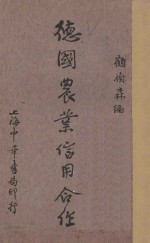 顧俊森編
德國農業信用合作
上海中華書局印行